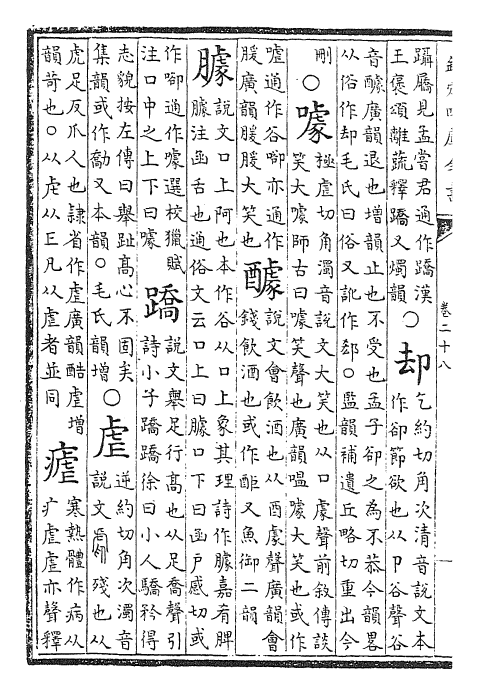 卷二十八
躡屩見孟嘗君通作蹻漢
王褒頌離蔬釋蹻又燭韻
○却
乞約切角次清音說文本
作卻節欲也从卩谷聲谷
音醵廣韻退也增韻止也不受也孟子卻之為不恭今韻畧
从俗作却毛氏曰俗又訛作郄○監韻補遺丘略切重出今
刪
○噱
極虐切角濁音說文大笑也从口豦聲前敘傳談
笑大噱師古曰噱笑聲也廣韻嗢噱大笑也或作
噓通作谷㖸亦通作
廣韻大笑也
醵
說文會飲酒也从酉豦聲廣韻會
錢飲酒也或作酠又魚御二韻
臄
說文口上阿也本作谷从口上象其理詩作臄嘉肴脾
臄注函舌也通俗文云口上曰臄口下曰函戶感切或
作㖸通作噱選校獵賦
注口中之上下曰噱
蹻
說文舉足行高也从足喬聲引
詩小子蹻蹻徐曰小人驕矜得
志貌按左傳曰舉趾高心不固矣
集韻或作勪又本韻○毛氏韻增
○虐
逆約切角次濁音
說文殘也从
虎足反爪人也隷省作虐廣韻酷虐增
韻苛也○从虍从凡从虐者並同
瘧
寒熱體作病从
疒虐虐亦聲釋